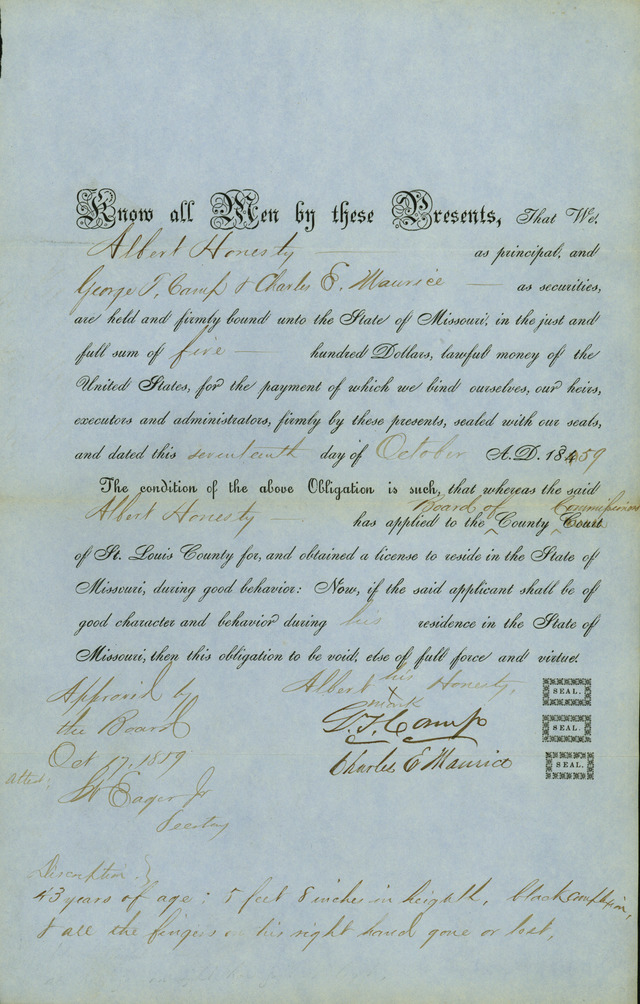 Know all Men by these Presents, That We,
Albert Honesty as principal, and
George T. Camp & Charles E. Maurice as securities,
are held and firmly bound unto the State of Missouri, in the just and
full sum of five hundred Dollars, lawful money of the
United States, for the payment of which we bind ourselves, our heirs,
executors and administrators, firmly by these presents, sealed with our seals,
and dated this seventeenth day of October A.D. 1859
The condition of the above Obligation is such, that whereas the said
Board of Commissioners
Albert Honesty has applied to the County Court
of St. Louis County for, and obtained a license to reside in the State of
Missouri, during good behavior: Now, if the said applicant shall be of
good character and behavior during his residence in the State of
Missouri, then this obligation to be void, else of full force and virtue.
Albert his Honesty, SEAL.
X
mark
G. T. Camp SEAL.
Charles E Maurice SEAL.
Approved by
the Board
Oct 17, 1859
Attest;
Wm Eager Jr
Secretary
Description
43 years of age; 5 feet 8 inches in heighth, black complexion,
& all the fingers on his right hand gone or lost,